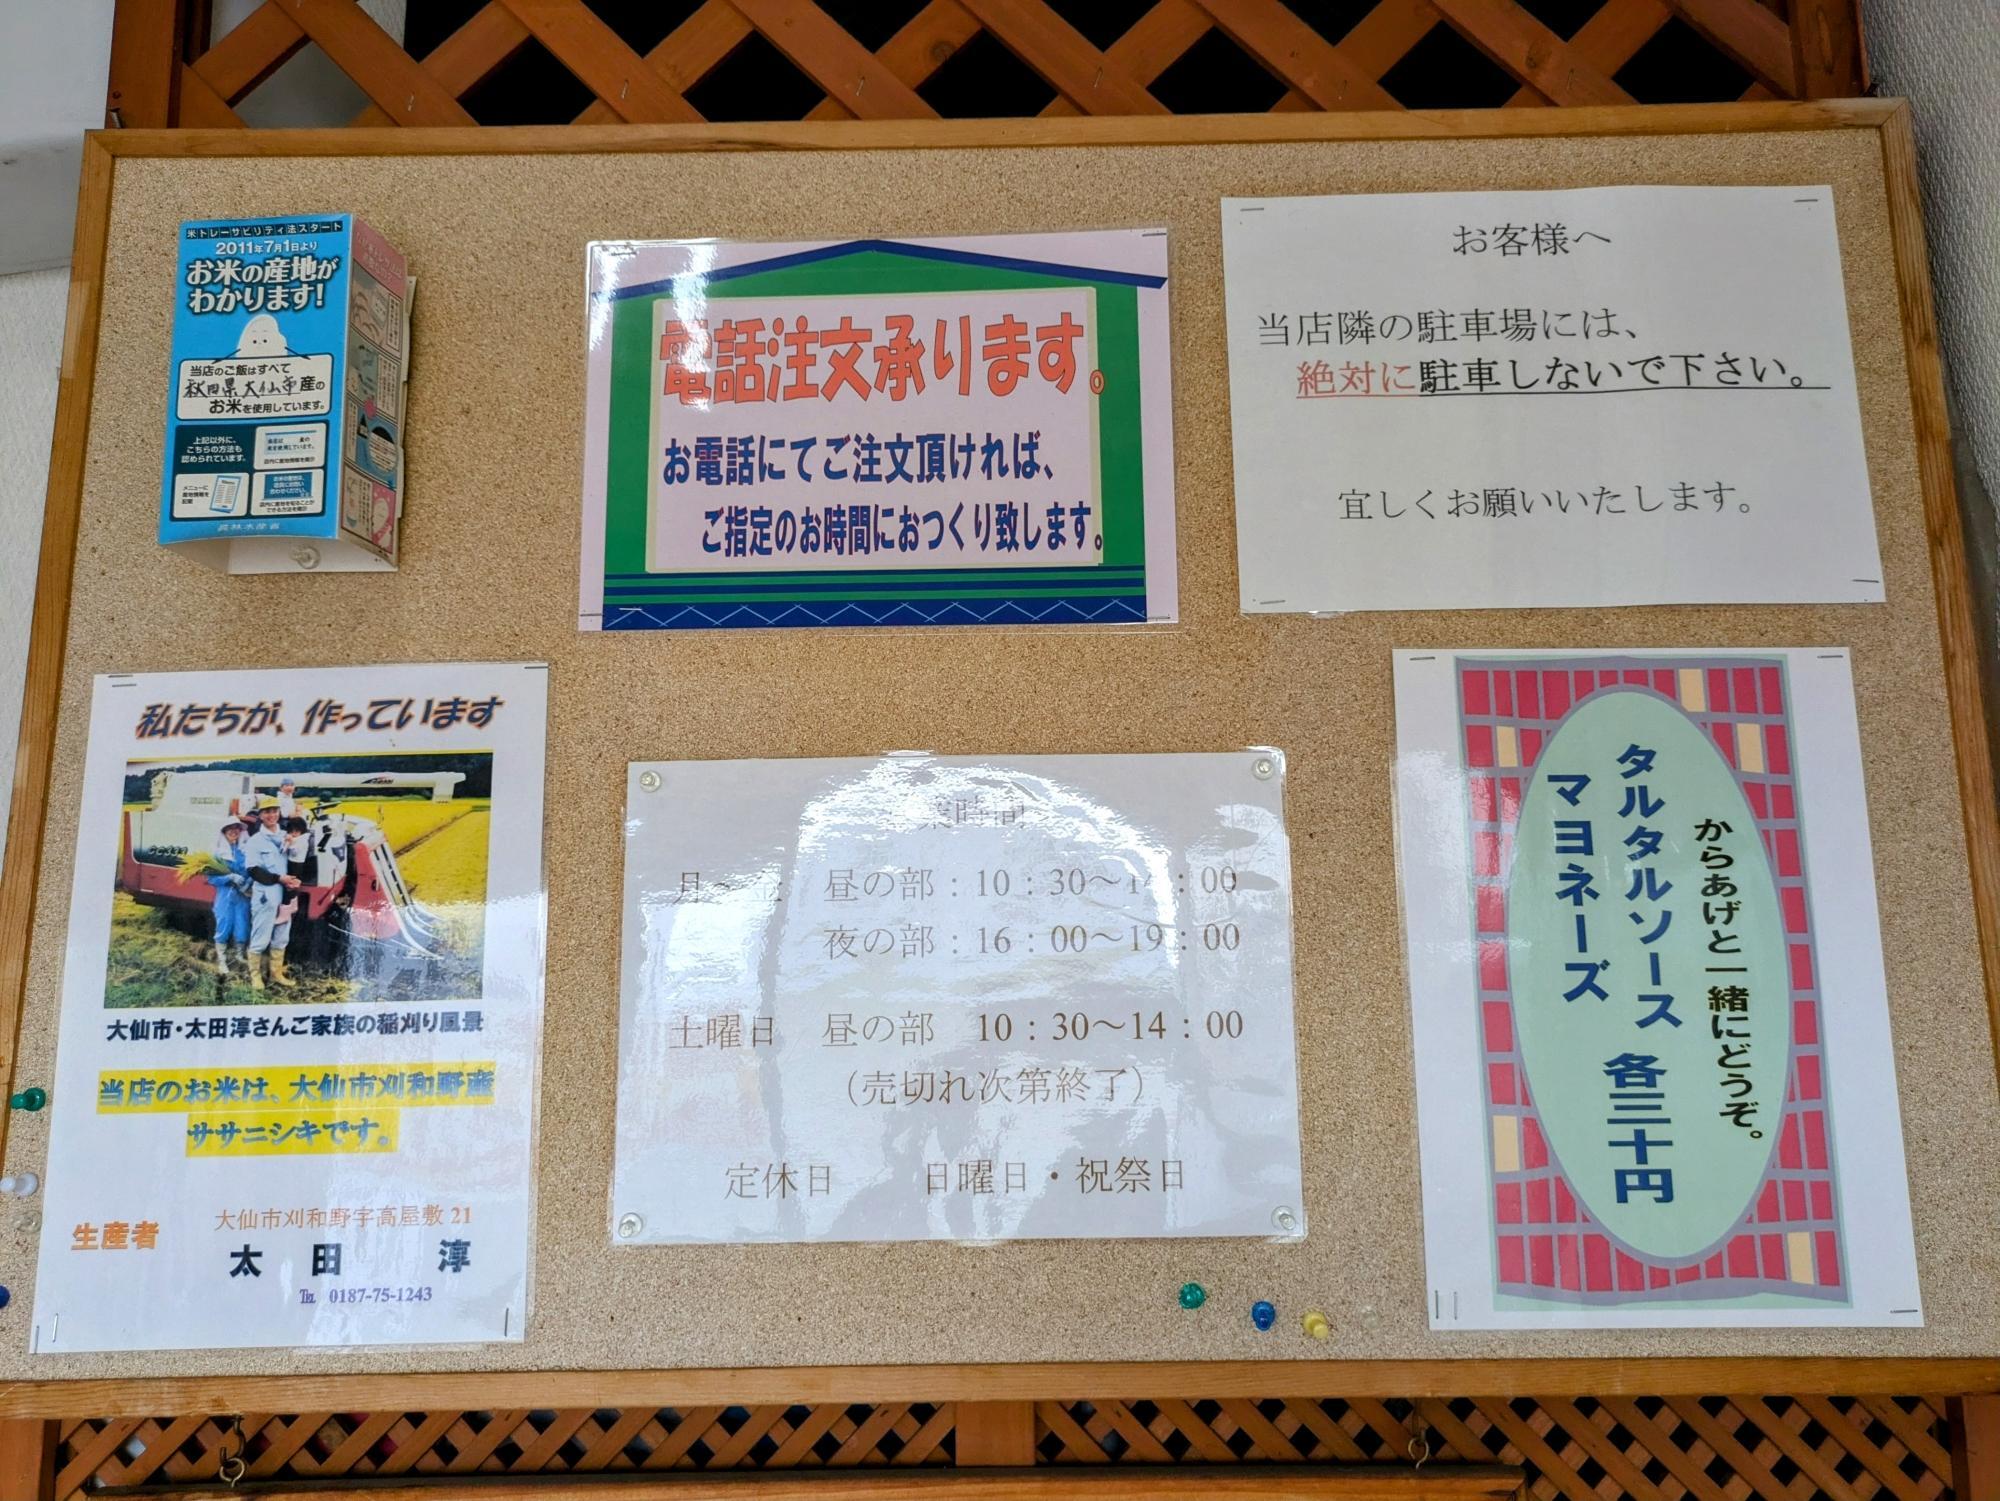 米トレーサビリティ法スタート
2011年7月1日より
お米の産地が
わかります!
当店のご飯はすべて
秋田県大仙市産の
お米を使用しています。
上記以外に、
こちらの方法も
認められています。
メニューに
産地情報を
記載
店内に産地情報を掲示
店内に産地を知ることが
できる方法を掲示
農林水産省
電話注文承ります。
お電話にてご注文頂ければ、
ご指定のお時間におつくり致します。
お客様へ
当店隣の駐車場には、
絶対に駐車しないで下さい。
宜しくお願いいたします。
私たちが、作っています
大仙市・太田淳さんご家族の稲刈り風景
当店のお米は、大仙市刈和野産
ササニシキです。
生産者
大仙市刈和野字高屋敷21
太田 淳
℡ 0187-75-1243
業時間
月～金 昼の部：10：30～14：00
夜の部：16：00～19：00
土曜日 昼の部 10：30～14：00
（売切れ次第終了）
定休日 日曜日・祝祭日
からあげと一緒にどうぞ。
タルタルソース 各三十円
マヨネーズ